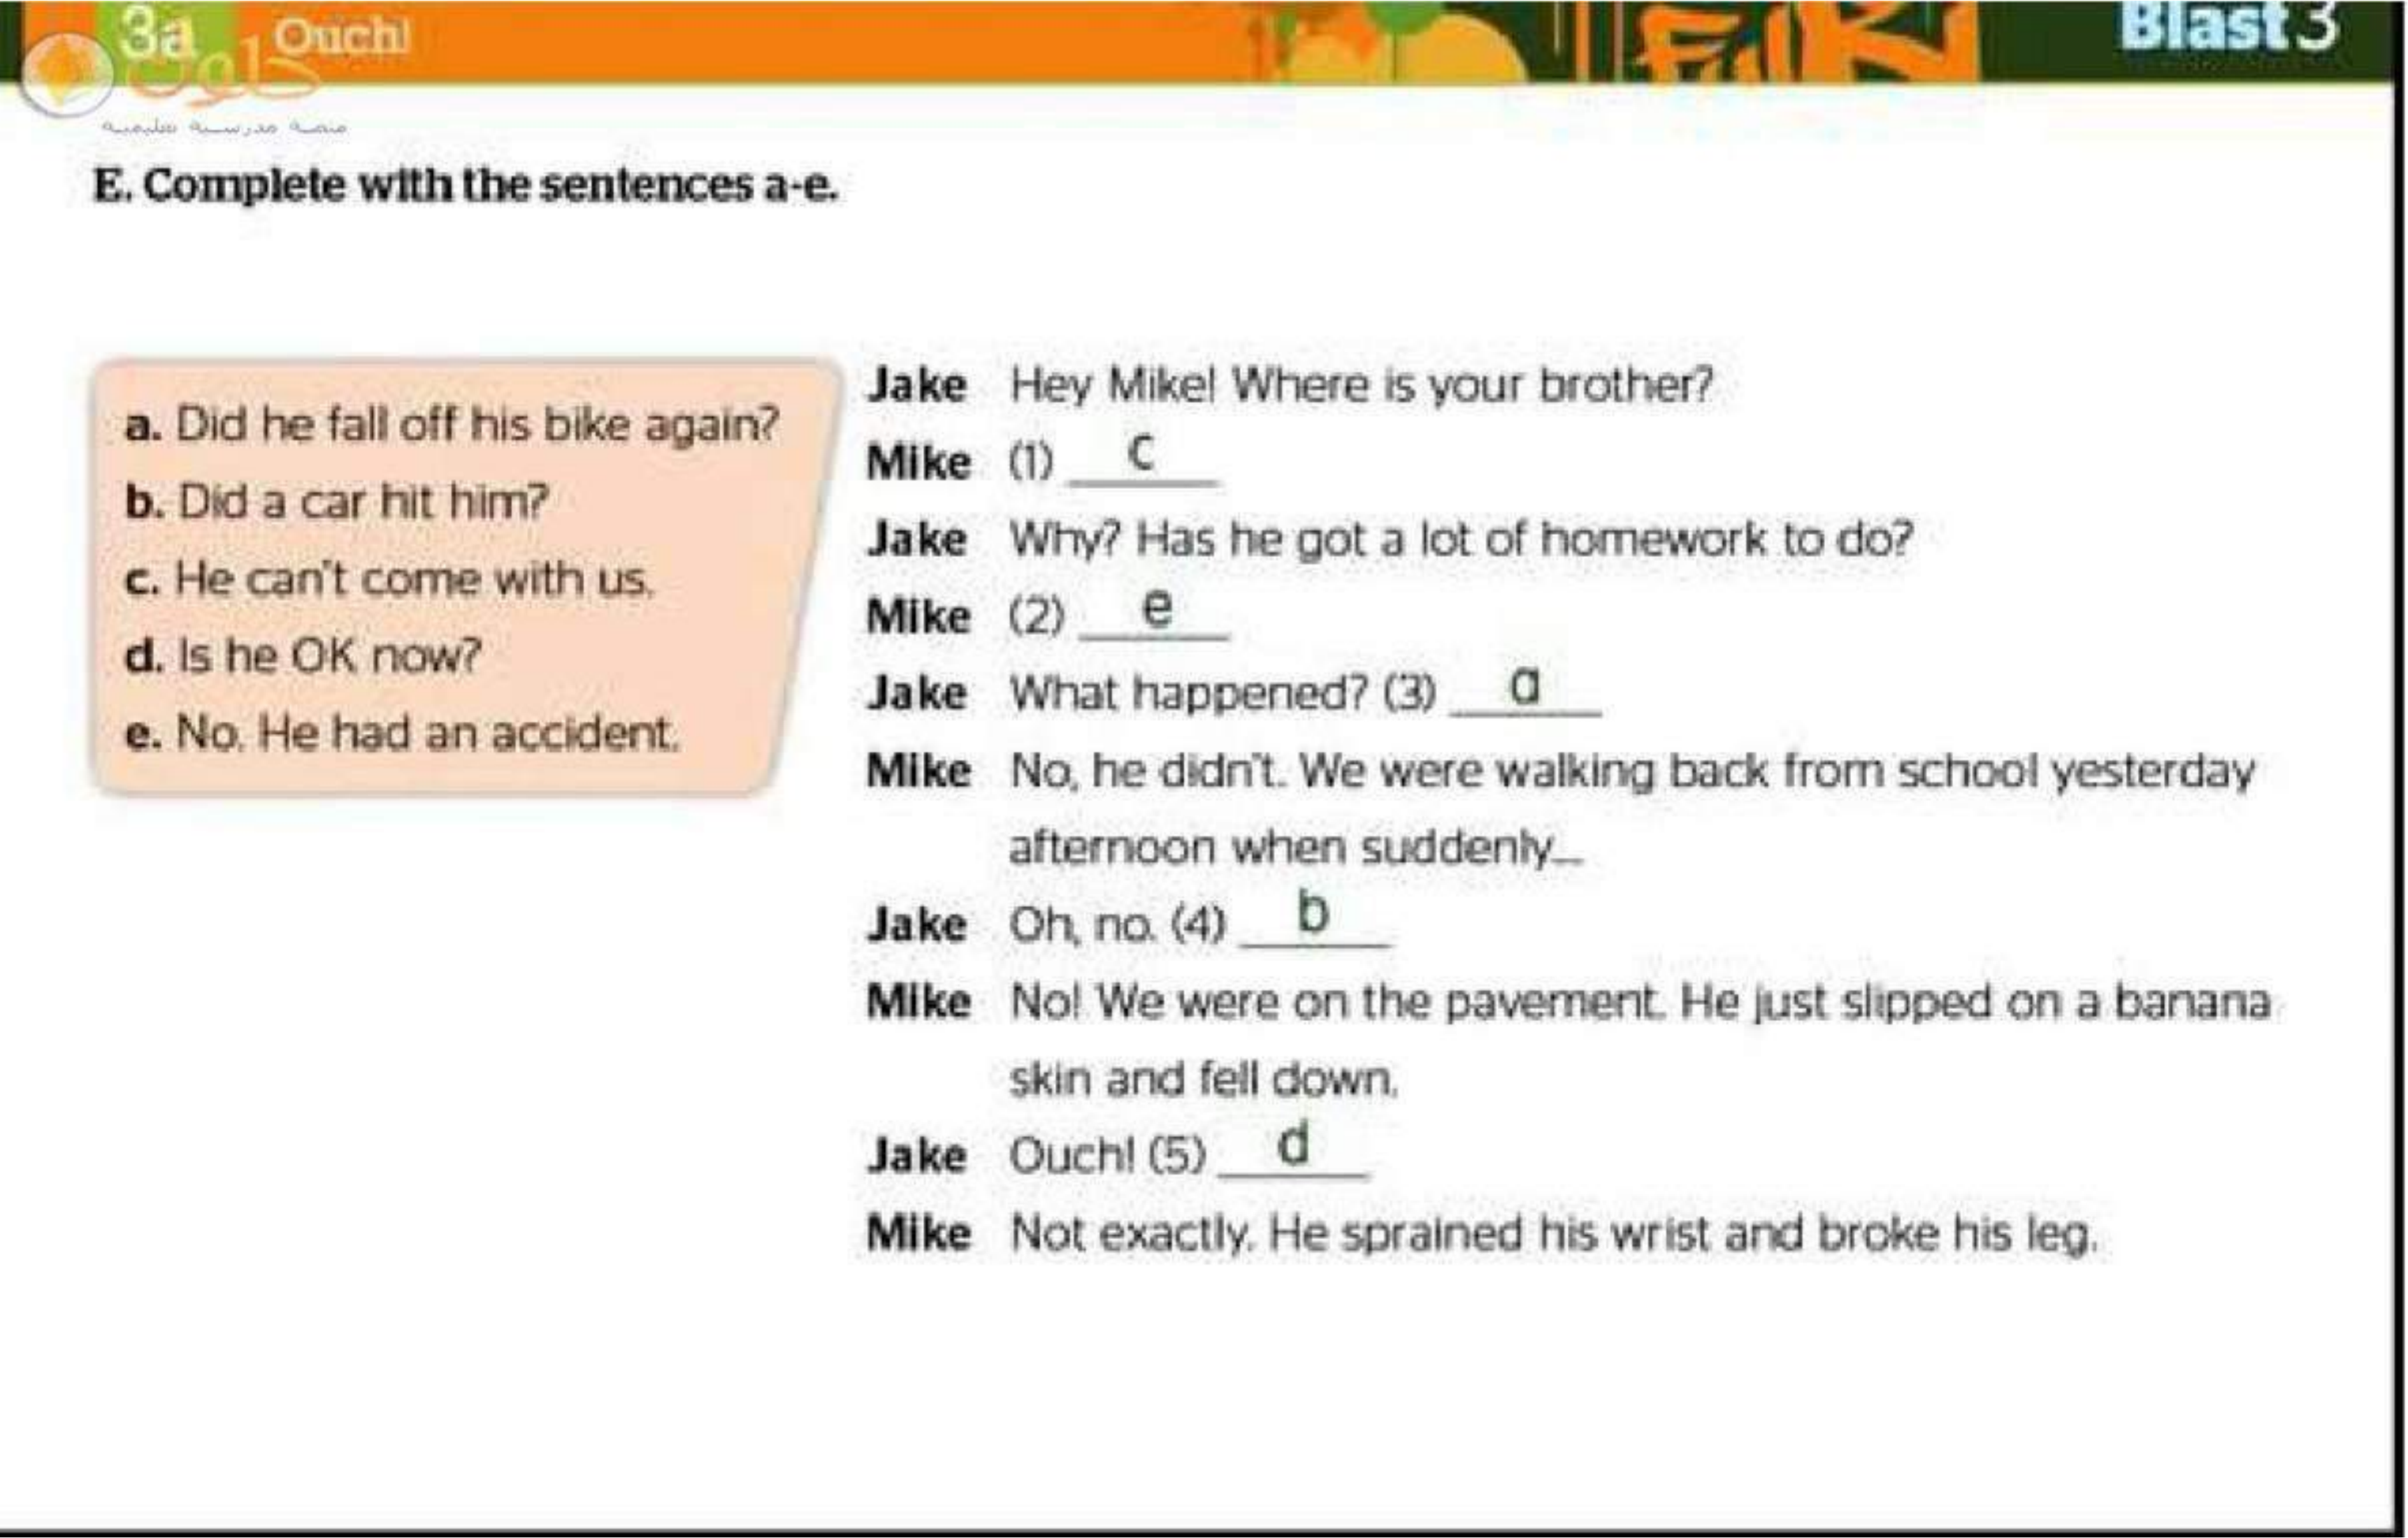 3a Ouch!
Blast 3
حلول
منصة مدرسية تعليمية
E. Complete with the sentences a-e.
a. Did he fall off his bike again?
b. Did a car hit him?
c. He can't come with us.
d. Is he OK now?
e. No. He had an accident.
Jake Hey Mike! Where is your brother?
Mike (1) c
Jake Why? Has he got a lot of homework to do?
Mike (2) e
Jake What happened? (3) a
Mike No, he didn't. We were walking back from school yesterday
afternoon when suddenly...
Jake Oh, no. (4) b
Mike No! We were on the pavement. He just slipped on a banana
skin and fell down.
Jake Ouch! (5) d
Mike Not exactly. He sprained his wrist and broke his leg.